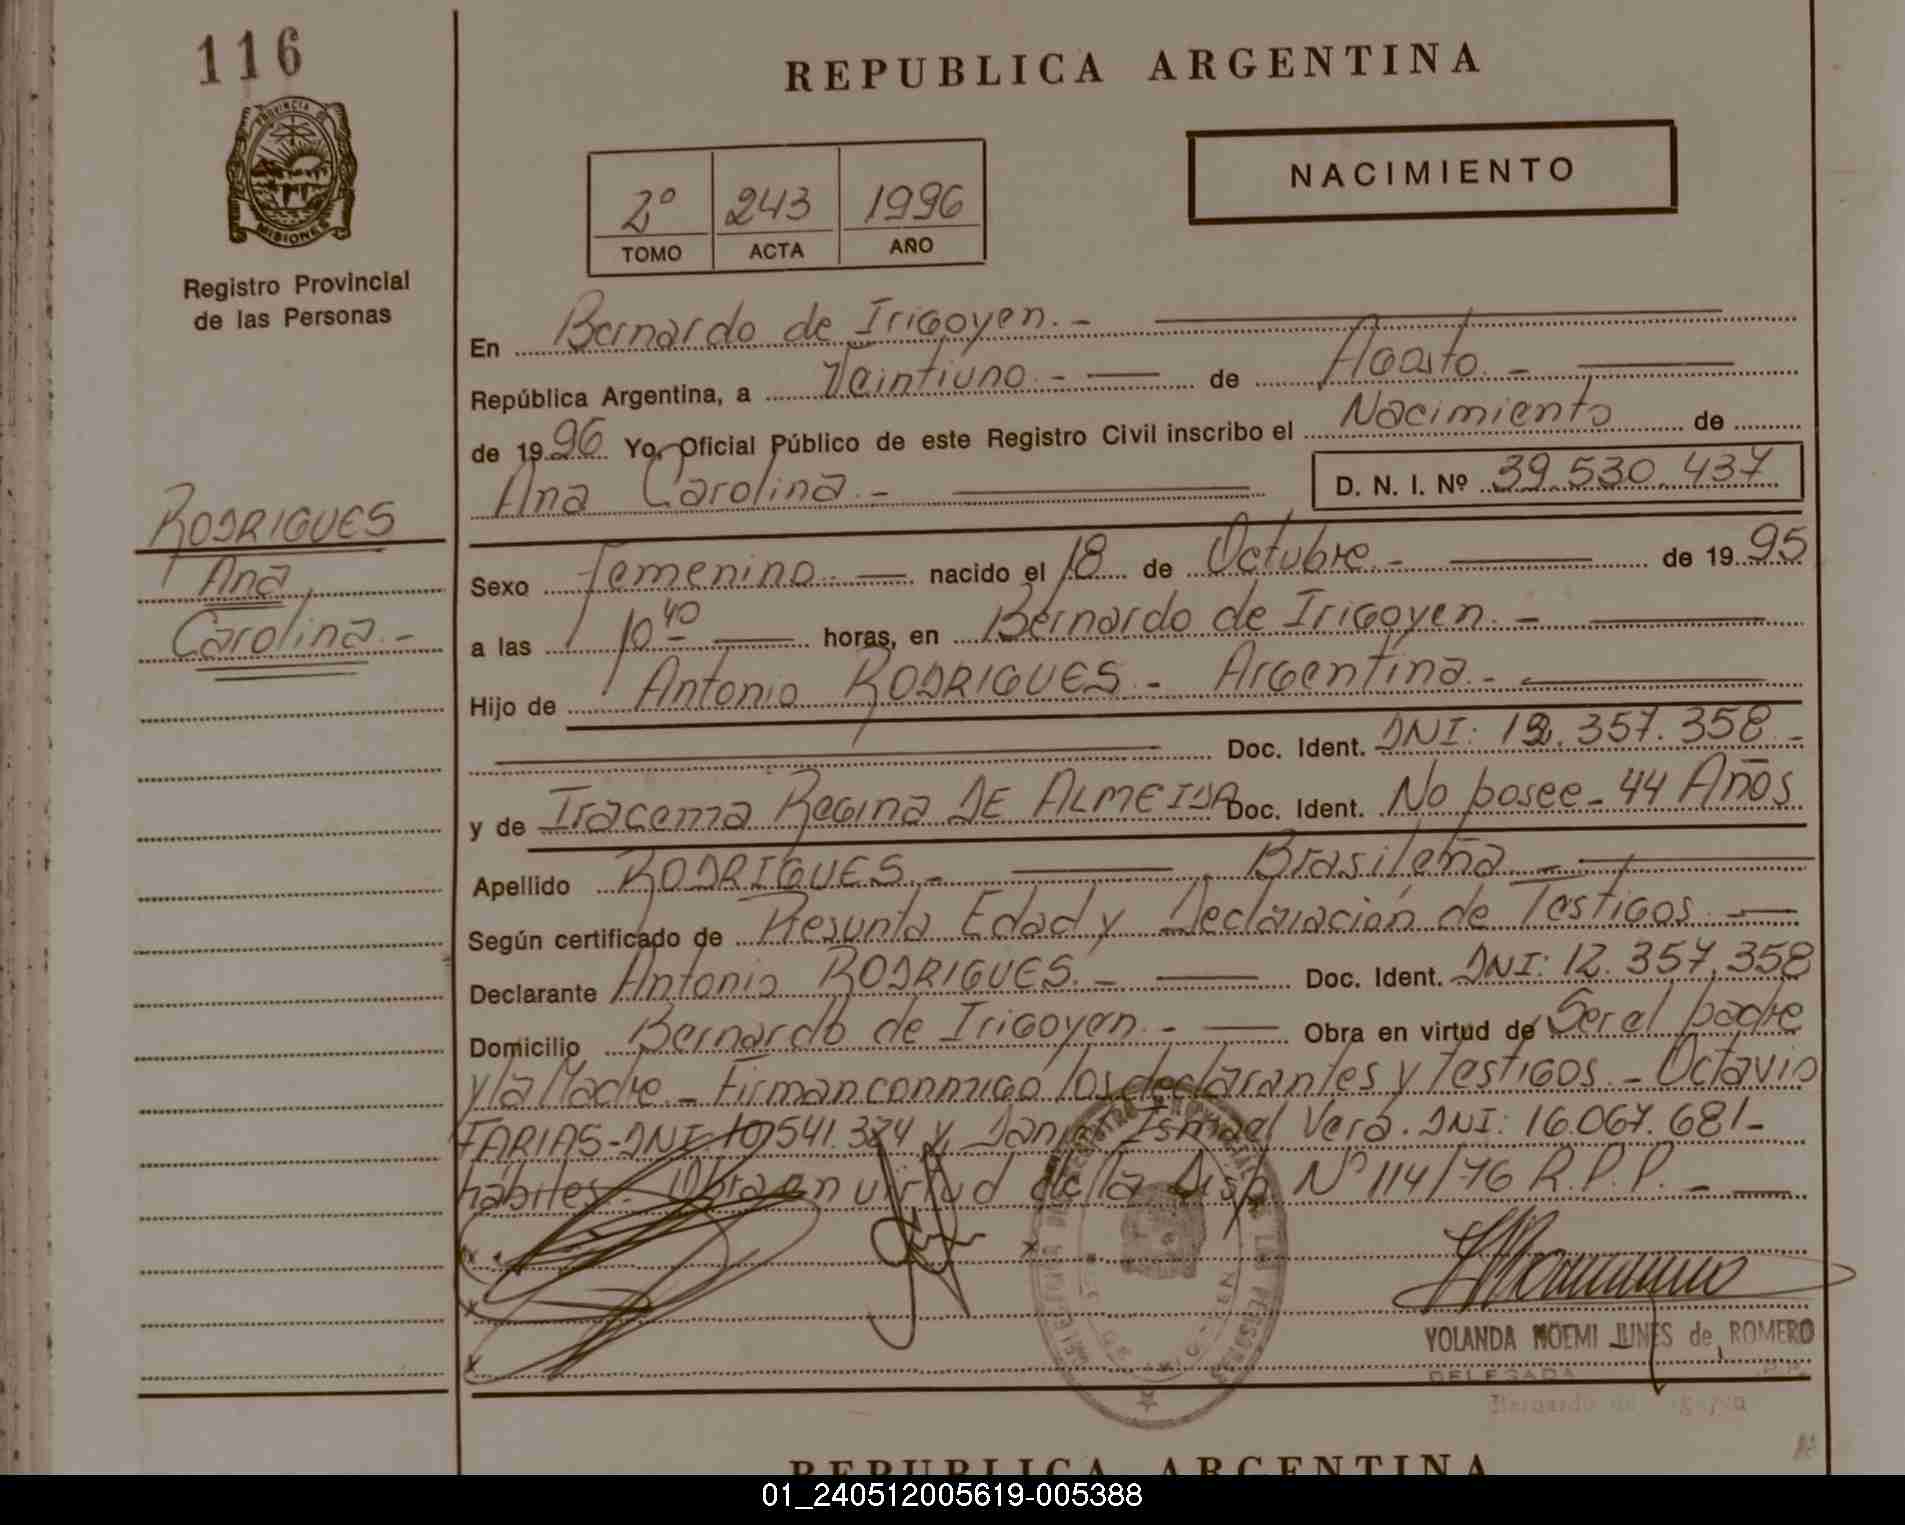 116
REPUBLICA ARGENTINA
PROVINCIA DE
MISIONES
Registro Provincial
de las Personas
2º 243 1996
TOMO ACTA AÑO
NACIMIENTO
En Bernardo de Irigoyen.-
República Argentina, a Veintiuno.- de Agosto.-
de 1996 Yo, Oficial Público de este Registro Civil inscribo el Nacimiento de
Ana Carolina.- D. N. I. Nº 39.530.437
RODRIGUES
Ana
Carolina.-
Sexo Femenino.- nacido el 18 de Octubre.- de 1995
a las 10 40 horas, en Bernardo de Irigoyen.-
Hijo de Antonio RODRIGUES.- Argentina.-
Doc. Ident. DNI: 12.357.358.-
y de Iracema Regina DE ALMEIDA Doc. Ident. No posee.- 44 Años
Apellido RODRIGUES.- Brasileña.-
Según certificado de Presunta Edad y Declaración de Testigos.-
Declarante Antonio RODRIGUES.- Doc. Ident. DNI: 12.357.358
Domicilio Bernardo de Irigoyen.- Obra en virtud de Ser el padre
y la Madre.- Firman conmigo los declarantes y testigos.- Octavio
FARIAS-DNI 10.541.334 y Ismael Vera. DNI: 16.067.681-
habiles.- Obra en virtud de la Disp. Nº 114/76 R.P.P.-
YOLANDA NOEMI JUNES de ROMERO
DELEGADA
Bernardo de Irigoyen
REPUBLICA ARGENTINA
01_240512005619-005388